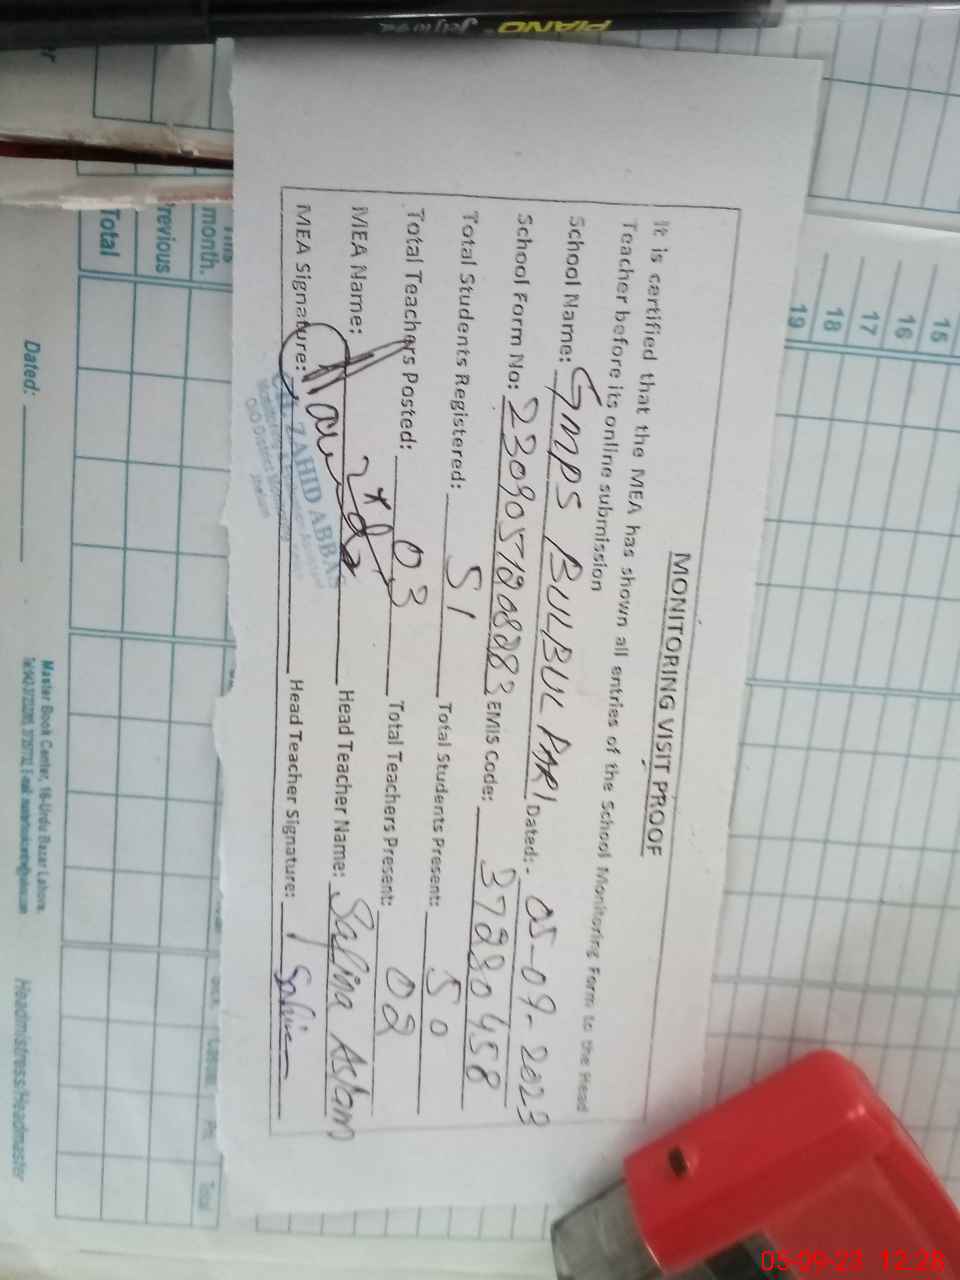 PIANO
MONITORING VISIT PROOF
It is certified that the MEA has shown all entries of the School Monitoring Form to the Head
Teacher before its online submission
School Name: GMPS BULBUL PARI Dated:- 05-09-2023
School Form No: EMIS Code: 37230458
Total Students Registered: 51 Total Students Present: 50
Total Teachers Posted: 03 Total Teachers Present: 02
MEA Name: Head Teacher Name: Salina Aslam
MEA Signature: Head Teacher Signature:
ZAHID ABBAS
15
16
17
18
19
month.
Previous
Total
Dated:
Master Book Center, 16-Urdu Bazar Lahore.
Headmistress/Headmaster
Total
05-09-23 12:28